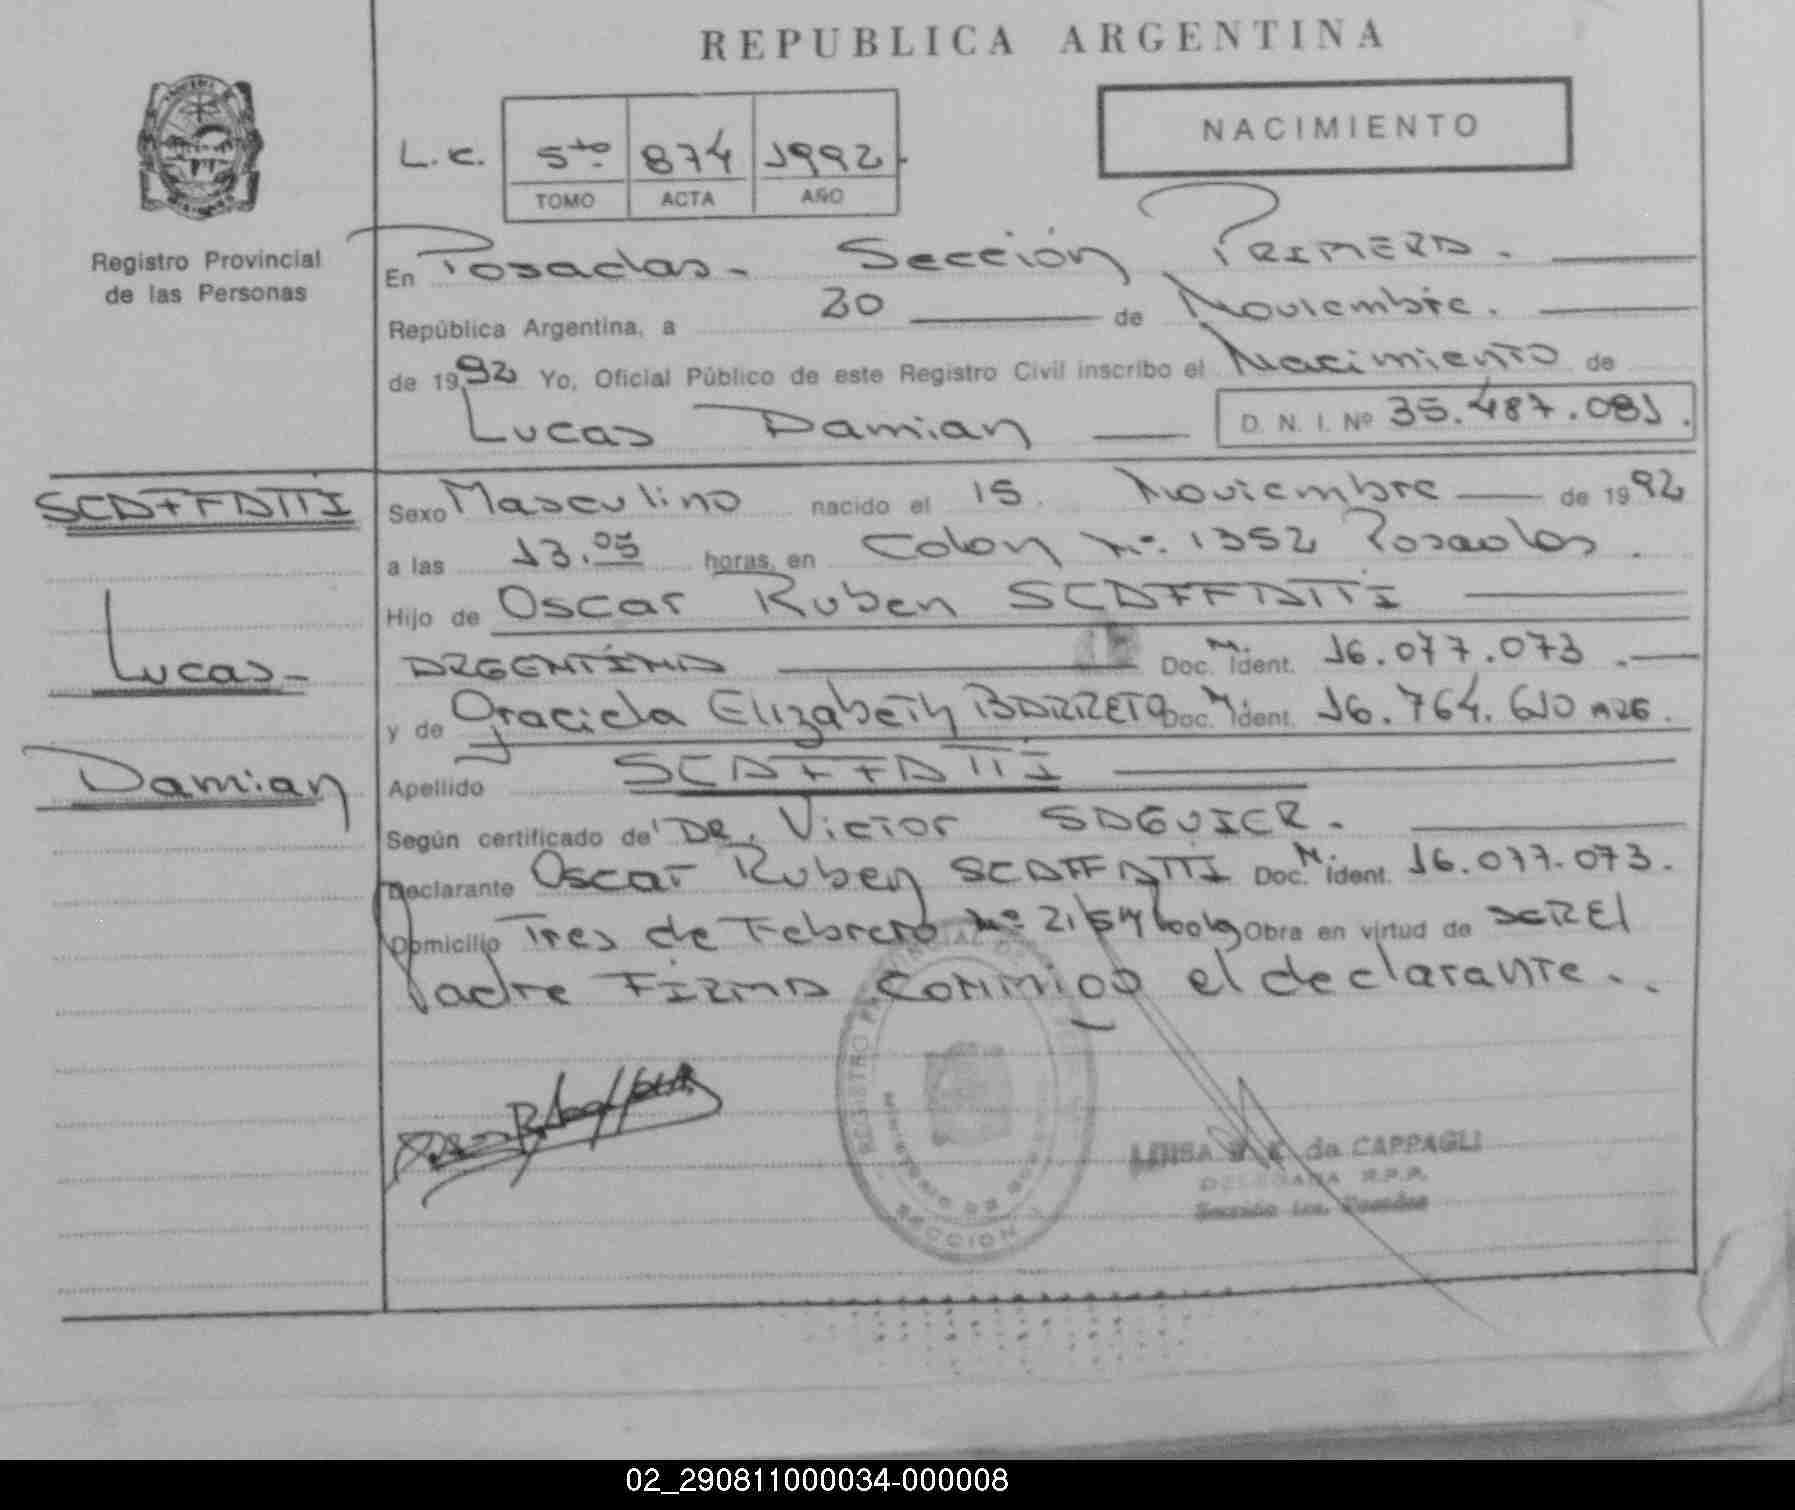 REPUBLICA ARGENTINA
NACIMIENTO
L.C. 5to 874 1992
TOMO ACTA AÑO
Registro Provincial
de las Personas
En Posadas - Sección PRIMERA.
República Argentina, a 20 de Noviembre.
de 1992 Yo, Oficial Público de este Registro Civil inscribo el Nacimiento de
Lucas Damian D. N. I. Nº 35.487.081.
SCAFFATTI
Sexo Masculino nacido el 15 Noviembre de 1992
a las 13.05 horas, en Colon Nº. 1352 Posadas.
Hijo de Oscar Ruben SCAFFATTI
Lucas-
ARGENTINA Doc. N. Ident. 16.077.073.
y de Graciela Elizabeth BARRETO Doc. N. Ident. 16.764.610 ARG.
Damian
Apellido SCAFFATTI
Según certificado de Dr. Victor SAGUIER.
Declarante Oscar Ruben SCAFFATTI Doc. N. Ident. 16.077.073.
Domicilio Tres de Febrero Nº Obra en virtud de SER El
Padre FIRMA CONMIGO el declarante.
REGISTRO
MINISTERIO DE
SECCION
LUISA de CAPPAGLI
DELEGADA R.P.P.
Sección 1ra. Posadas
02_290811000034-000008